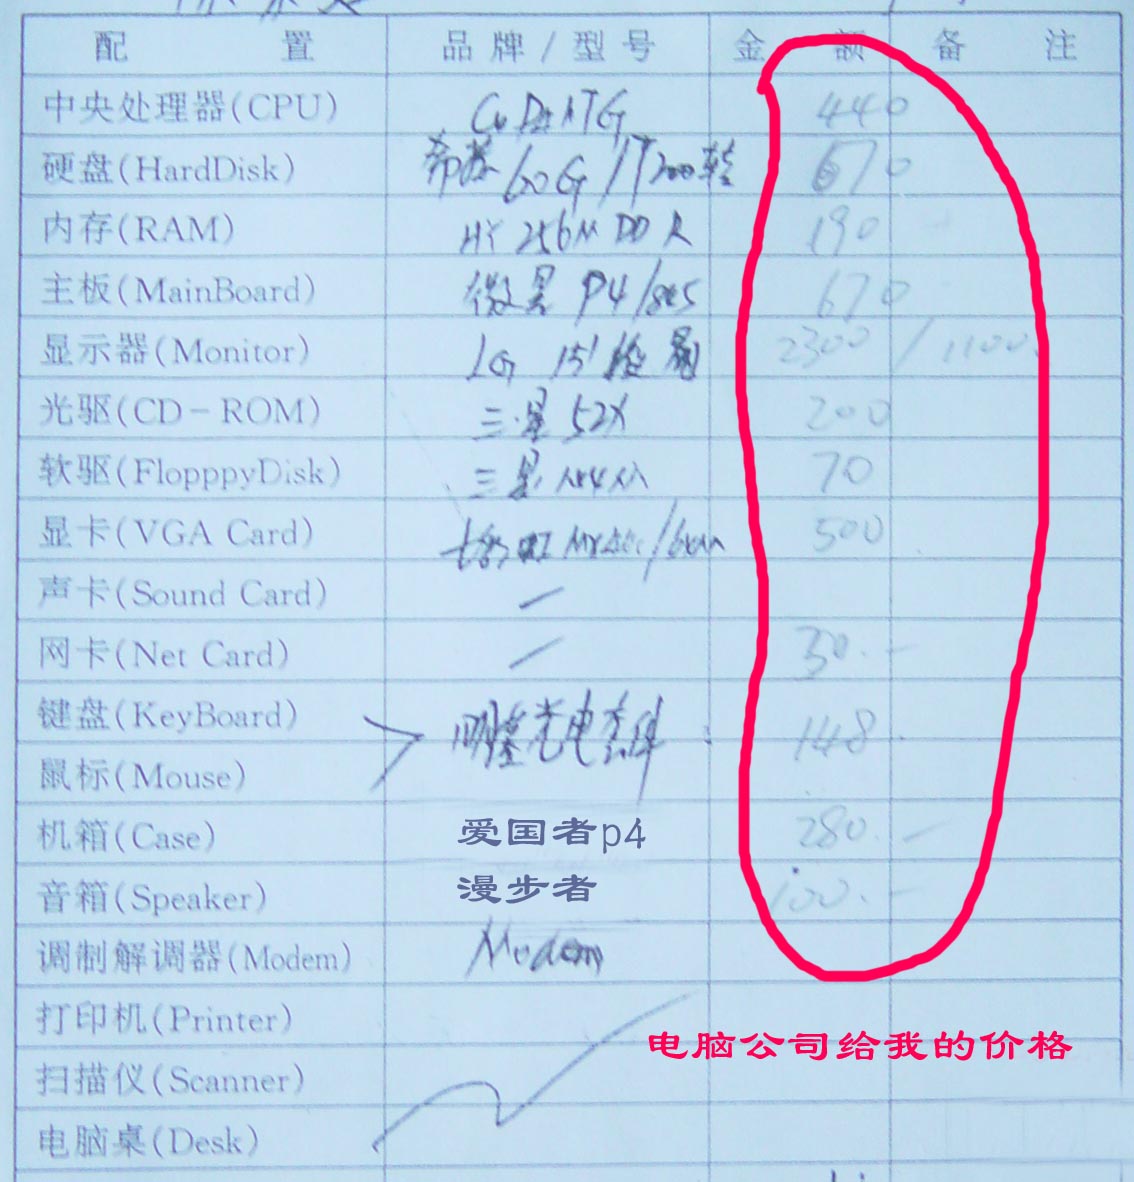 配 置 品 牌 / 型 号 金 额 备 注
中央处理器(CPU) 440
硬盘(HardDisk) 希捷 60G / 7200转 670
内存(RAM) HY 256M DDR 190
主板(MainBoard) 微星 P4 /845 670
显示器(Monitor) LG 15' 2300 / 1100.
光驱(CD-ROM) 三星 52X 200
软驱(FlopppyDisk) 三星 1.44M 70
显卡(VGA Card) 七彩虹 MX400/64M 500
声卡(Sound Card) —
网卡(Net Card) — 30.-
键盘(KeyBoard) 明基光电套件 148
鼠标(Mouse)
机箱(Case) 爱国者p4 280.-
音箱(Speaker) 漫步者 100.-
调制解调器(Modem) Modem
打印机(Printer)
电脑公司给我的价格
扫描仪(Scanner)
电脑桌(Desk)